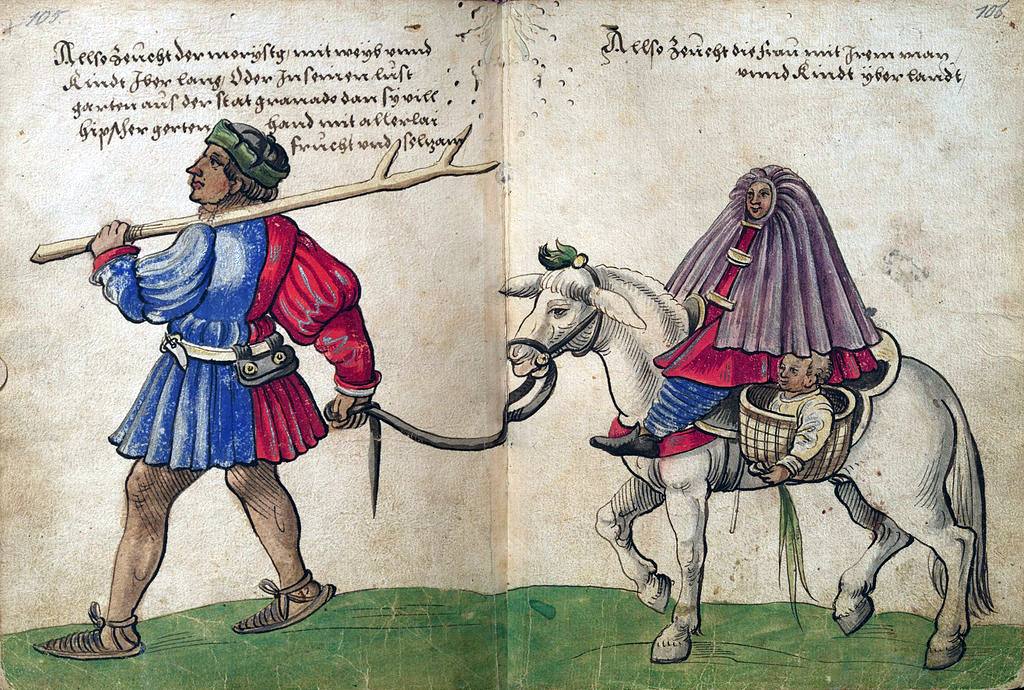 105.
Allso Zeucht der morÿstg, mit weÿb vnnd
Kindt Jber lang, Oder Jn seinen lust
garten aus der stat granado dan sÿ vill
hipscher gerten hand mit allerlai
frücht vnd selzam
106.
Allso Zeücht die fraü mit Jrem man
vnnd Kindt ÿber landt,